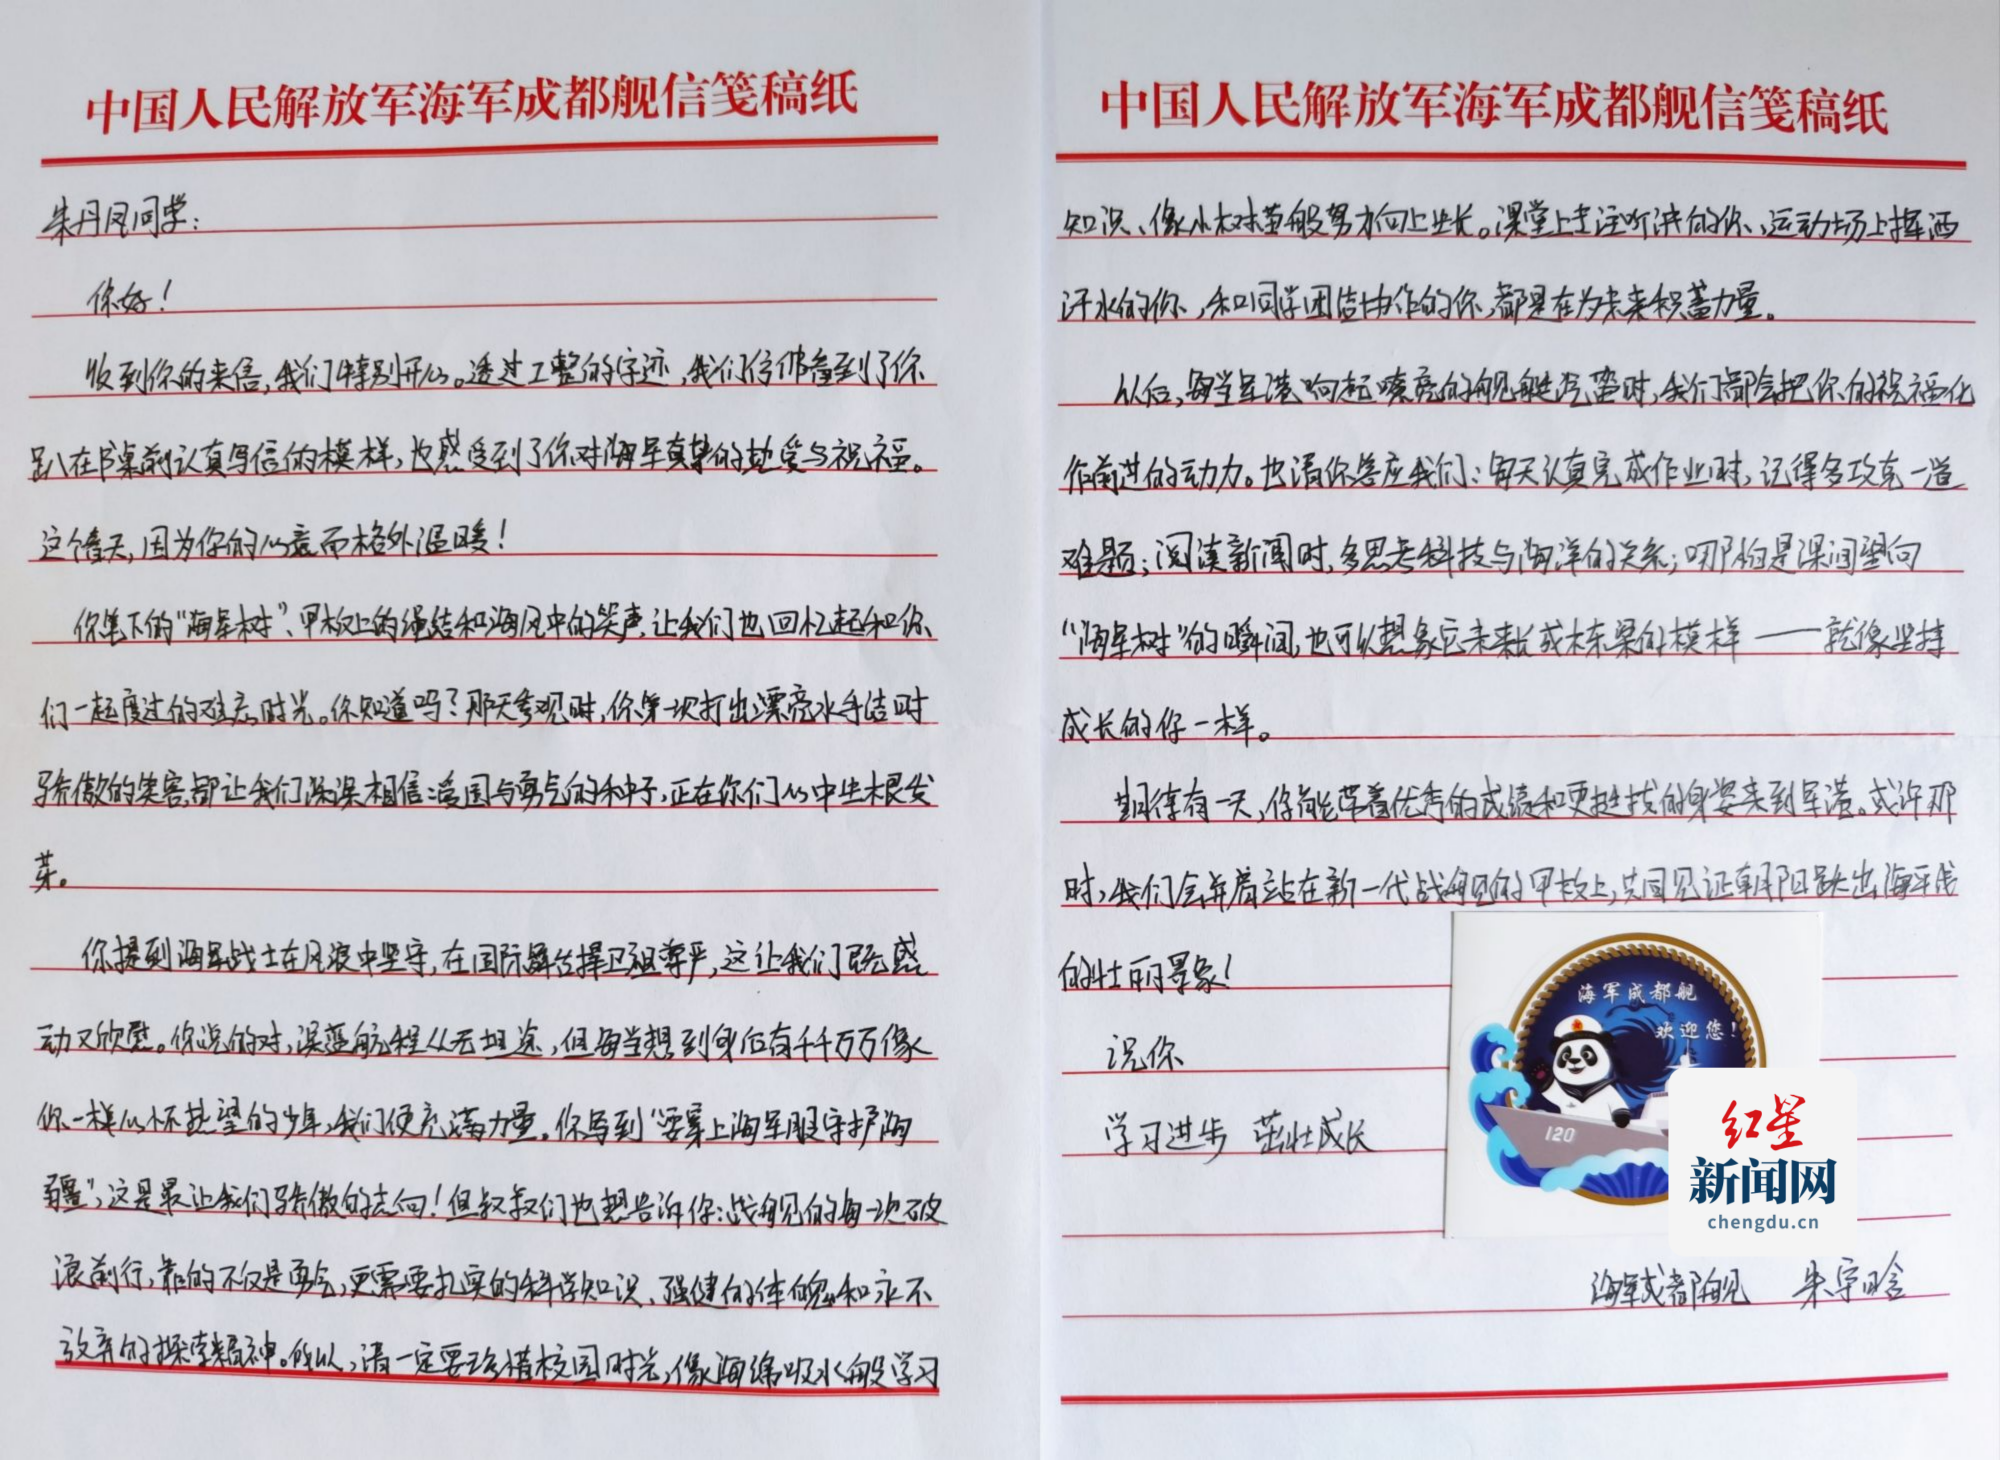 中国人民解放军海军成都舰信笺稿纸
朱丹凤同学：
你好！
收到你的来信，我们特别开心。透过工整的字迹，我们仿佛看到了你
趴在书桌前认真写信的模样，也感受到了你对海军真挚的热爱与祝福。
这个春天，因为你的心意而格外温暖！
你笔下的“海军树”、甲板上的绳结和海风中的笑声，让我们也回忆起和你
们一起度过的难忘时光。你知道吗？那天参观时，你第一次打出漂亮水手结时
骄傲的笑容，都让我们深深相信：爱国与勇气的种子，正在你们心中生根发
芽。
你提到海军战士在风浪中坚守，在国际舞台捍卫祖尊严，这让我们既感
动又欣慰。你说的对，深蓝航程从无坦途，但每当想到身后有千千万万像
你一样心怀热望的少年，我们便充满力量。你写到“要穿上海军服守护海
疆”，这是最让我们骄傲的志向！但叔叔们也想告诉你：战舰的每一次破
浪前行，靠的不仅是勇气，更需要扎实的科学知识、强健的体魄和永不
放弃的探索精神。所以，请一定要珍惜校园时光，像海绵吸水般学习
中国人民解放军海军成都舰信笺稿纸
知识、像小树苗般努力向上生长。课堂上专注听讲的你、运动场上挥洒
汗水的你，和同学团结协作的你，都是在为未来积蓄力量。
以后，每当军港响起嘹亮的舰艇汽笛时，我们都会把你的祝福化
作前进的动力。也请你答应我们：每天认真完成作业时，记得多攻克一道
难题；阅读新闻时，多思考科技与海洋的关系；哪怕是课间望向
“海军树”的瞬间，也可以想象它未来长成栋梁的模样——就像坚持
成长的你一样。
期待有一天，你能带着优秀的成绩和更挺拔的身姿来到军港。或许那
时，我们会并肩站在新一代战舰的甲板上，共同见证朝阳跃出海平线
的壮丽景象！
祝你
学习进步 茁壮成长
海军成都舰
欢迎您！
120
红星
新闻网
chengdu.cn
海军成都舰 朱宇晗